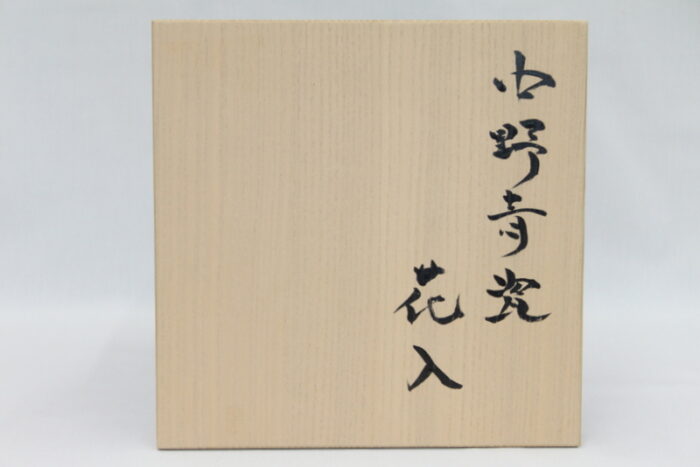 小野青瓷
花入